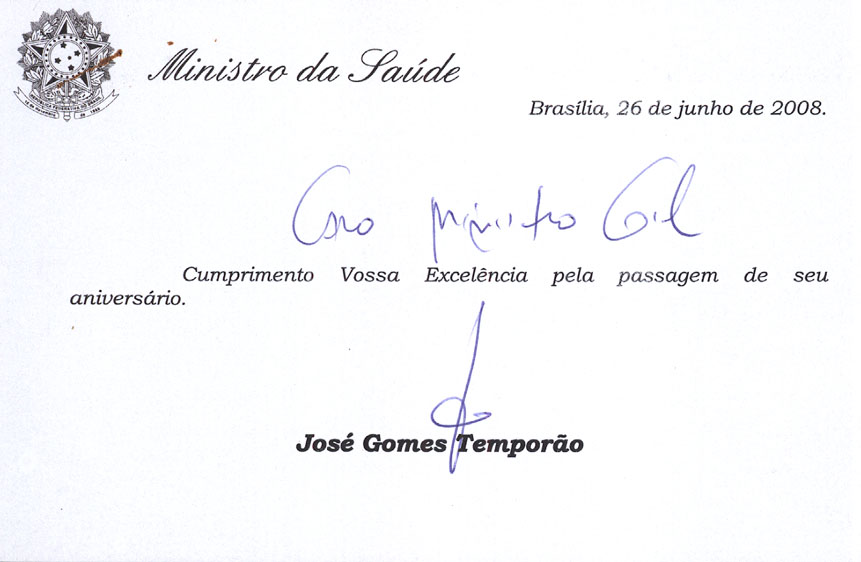 Ministro da Saúde
Brasília, 26 de junho de 2008.
Caro Ministro Gil
Cumprimento Vossa Excelência pela passagem de seu
aniversário.
José Gomes Temporão